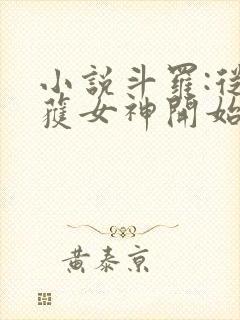 小說斗羅:從
獲女神開始
黃泰京